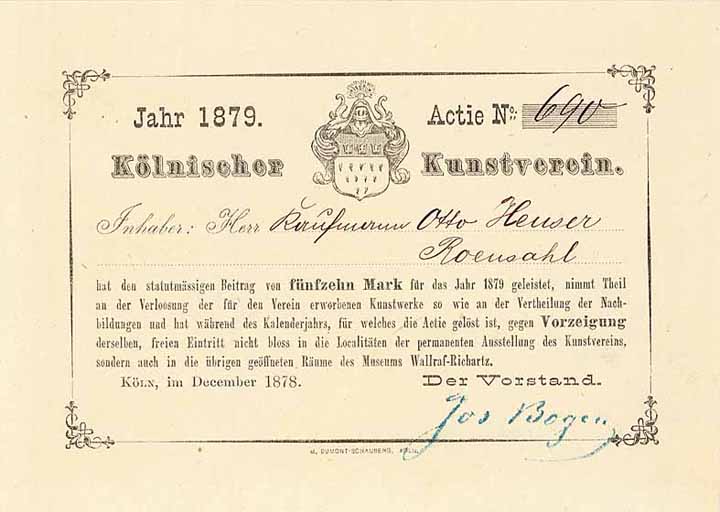 Jahr 1879. Actie No: 690
Kölnischer Kunstverein.
Inhaber: Herr Kaufmann Otto Heuser
Roensahl
hat den statutmässigen Beitrag von fünfzehn Mark für das Jahr 1879 geleistet, nimmt Theil
an der Verloosung der für den Verein erworbenen Kunstwerke so wie an der Vertheilung der Nach-
bildungen und hat während des Kalenderjahrs, für welches die Actie gelöst ist, gegen Vorzeigung
derselben, freien Eintritt nicht bloss in die Localitäten der permanenten Ausstellung des Kunstvereins,
sondern auch in die übrigen geöffneten Räume des Museums Wallraf-Richartz.
Köln, im December 1878. Der Vorstand.
Jos Bogen
M. DUMONT-SCHAUBERG, KÖLN.